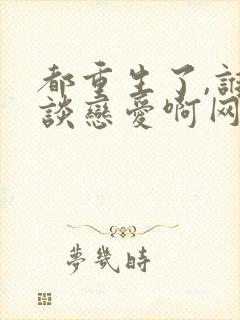 都重生了,誰
談戀愛啊网
夢幾時